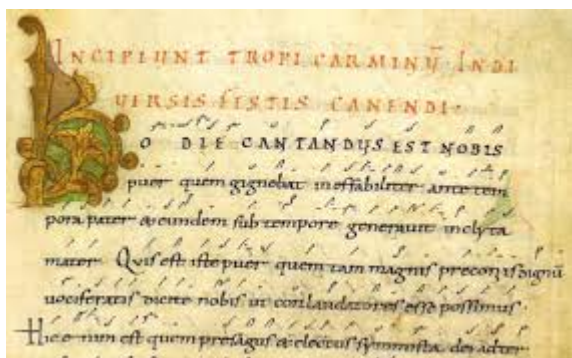 INCIPIUNT TROPI CARMINŪ INDI
UERSIS FESTIS CANENDI·
HODIE CANTANDUS EST NOBIS
puer quem gignebat ineffabiliter ante tem
pora pater & eundem sub tempore generauit inclyta
mater· Quis est iste puer quem tam magnis preconiis dignū
uociferatis dicite nobis ut conlaudatores esse possimus·
Hic enim est quem presagus & electus symmista dei ad ter